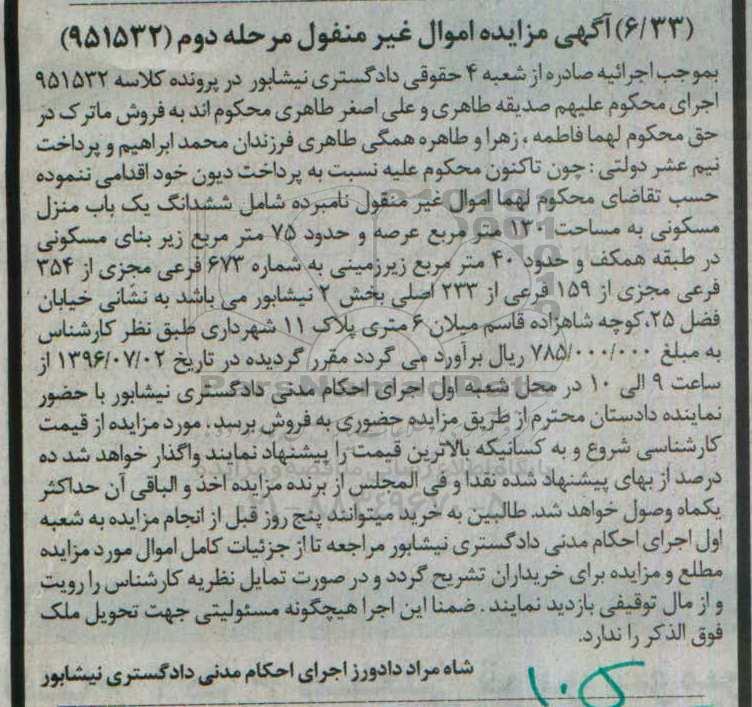 (۶/۳۳) آگهی مزایده اموال غیر منقول مرحله دوم (۹۵۱۵۳۲)
بموجب اجرائیه صادره از شعبه ۴ حقوقی دادگستری نیشابور در پرونده کلاسه ۹۵۱۵۳۲
اجرای محکوم علیهم صدیقه طاهری و علی اصغر طاهری محکوم اند به فروش ماترک در
حق محکوم لهما فاطمه ، زهرا و طاهره همگی طاهری فرزندان محمد ابراهیم و پرداخت
نیم عشر دولتی : چون تاکنون محکوم علیه نسبت به پرداخت دیون خود اقدامی ننموده
حسب تقاضای محکوم لهما اموال غیر منقول نامبرده شامل ششدانگ یک باب منزل
مسکونی به مساحت ۱۳۰ متر مربع عرصه و حدود ۷۵ متر مربع زیر بنای مسکونی
در طبقه همکف و حدود ۴۰ متر مربع زیرزمینی به شماره ۶۷۳ فرعی مجزی از ۳۵۴
فرعی مجزی از ۱۵۹ فرعی از ۲۳۳ اصلی بخش ۲ نیشابور می باشد به نشانی خیابان
فضل ۲۵،کوچه شاهزاده قاسم میلان ۶ متری پلاک ۱۱ شهرداری طبق نظر کارشناس
به مبلغ ۷۸۵/۰۰۰/۰۰۰ ریال برآورد می گردد مقرر گردیده در تاریخ ۱۳۹۶/۰۷/۰۲ از
ساعت ۹ الی ۱۰ در محل شعبه اول اجرای احکام مدنی دادگستری نیشابور با حضور
نماینده دادستان محترم از طریق مزایده حضوری به فروش برسد ، مورد مزایده از قیمت
کارشناسی شروع و به کسانیکه بالاترین قیمت را پیشنهاد نمایند واگذار خواهد شد ده
درصد از بهای پیشنهاد شده نقدا و فی المجلس از برنده مزایده اخذ و الباقی آن حداکثر
یکماه وصول خواهد شد. طالبین به خرید میتوانند پنج روز قبل از انجام مزایده به شعبه
اول اجرای احکام مدنی دادگستری نیشابور مراجعه تا از جزئیات کامل اموال مورد مزایده
مطلع و مزایده برای خریداران تشریح گردد و در صورت تمایل نظریه کارشناس را رویت
و از مال توقیفی بازدید نمایند . ضمنا این اجرا هیچگونه مسئولیتی جهت تحویل ملک
فوق الذکر را ندارد.
شاه مراد دادورز اجرای احکام مدنی دادگستری نیشابور